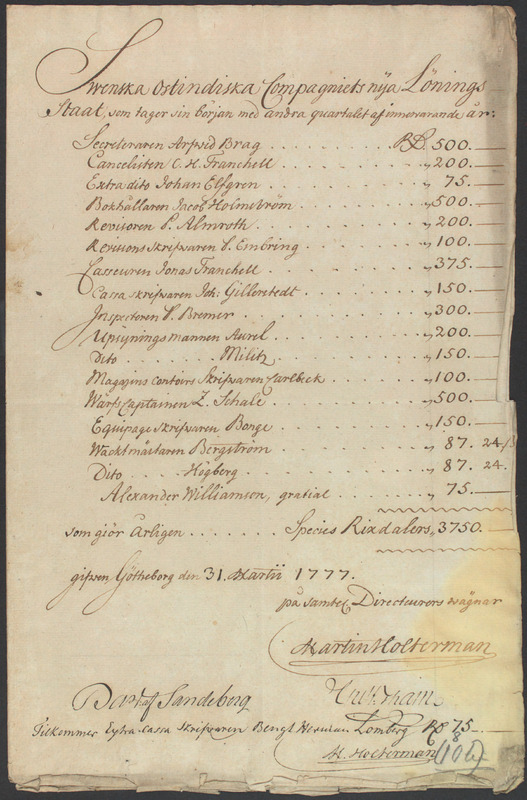 Swenska Ostindiska Compagniets nÿa Lönings
Staat, som tager sin början med andra quartalet af innewarande år:
Secreteraren Arfwid Brag . . . . . . . RD. 500. —
Cancelisten C. H. Franchell . . . . . . . „ 200. —
Extra dito Johan Elfgren . . . . . . . „ 75. —
Bokhållaren Jacob Holmström . . . . . . . „ 500. —
Revisoren P. Almroth . . . . . . . „ 200. —
Revisions Skrifwaren P. Embring . . . . . . . „ 100. —
Casseuren Jonas Franchell . . . . . . . „ 375. —
Cassa skrifwaren Joh: Gillerstedt . . . . . . . „ 150. —
Inspectoren P. Bremer . . . . . . . „ 300. —
Upsÿnings mannen Aurel . . . . . . . „ 200. —
Dito . . . . . . . Militz . . . . . . . „ 150. —
Magazins contoirs Skrifwaren Carlbeck . . . . . . . „ 100. —
Warfs Captainen Z. Schale . . . . . . . „ 500. —
Equipage Skrifwaren Bange . . . . . . . „ 150. —
Wacktmästaren Bergström . . . . . . . „ 87. 24.
Dito . . . . Högberg . . . . . . . „ 87. 24.
Alexander Williamson, gratial . . . . . . . „ 75. —
som giör Årligen . . . . . . . Species Rixdalers „ 3750. —
gifwen Götheborg den 31. Martii 1777.
på samtel. Directeurers wägnar
Martin Holterman
af Sandeberg
Tilkommer Extra Cassa Skrifwaren Bengt Herman Lomberg RD 75 —
M. Holterman
8
(106)